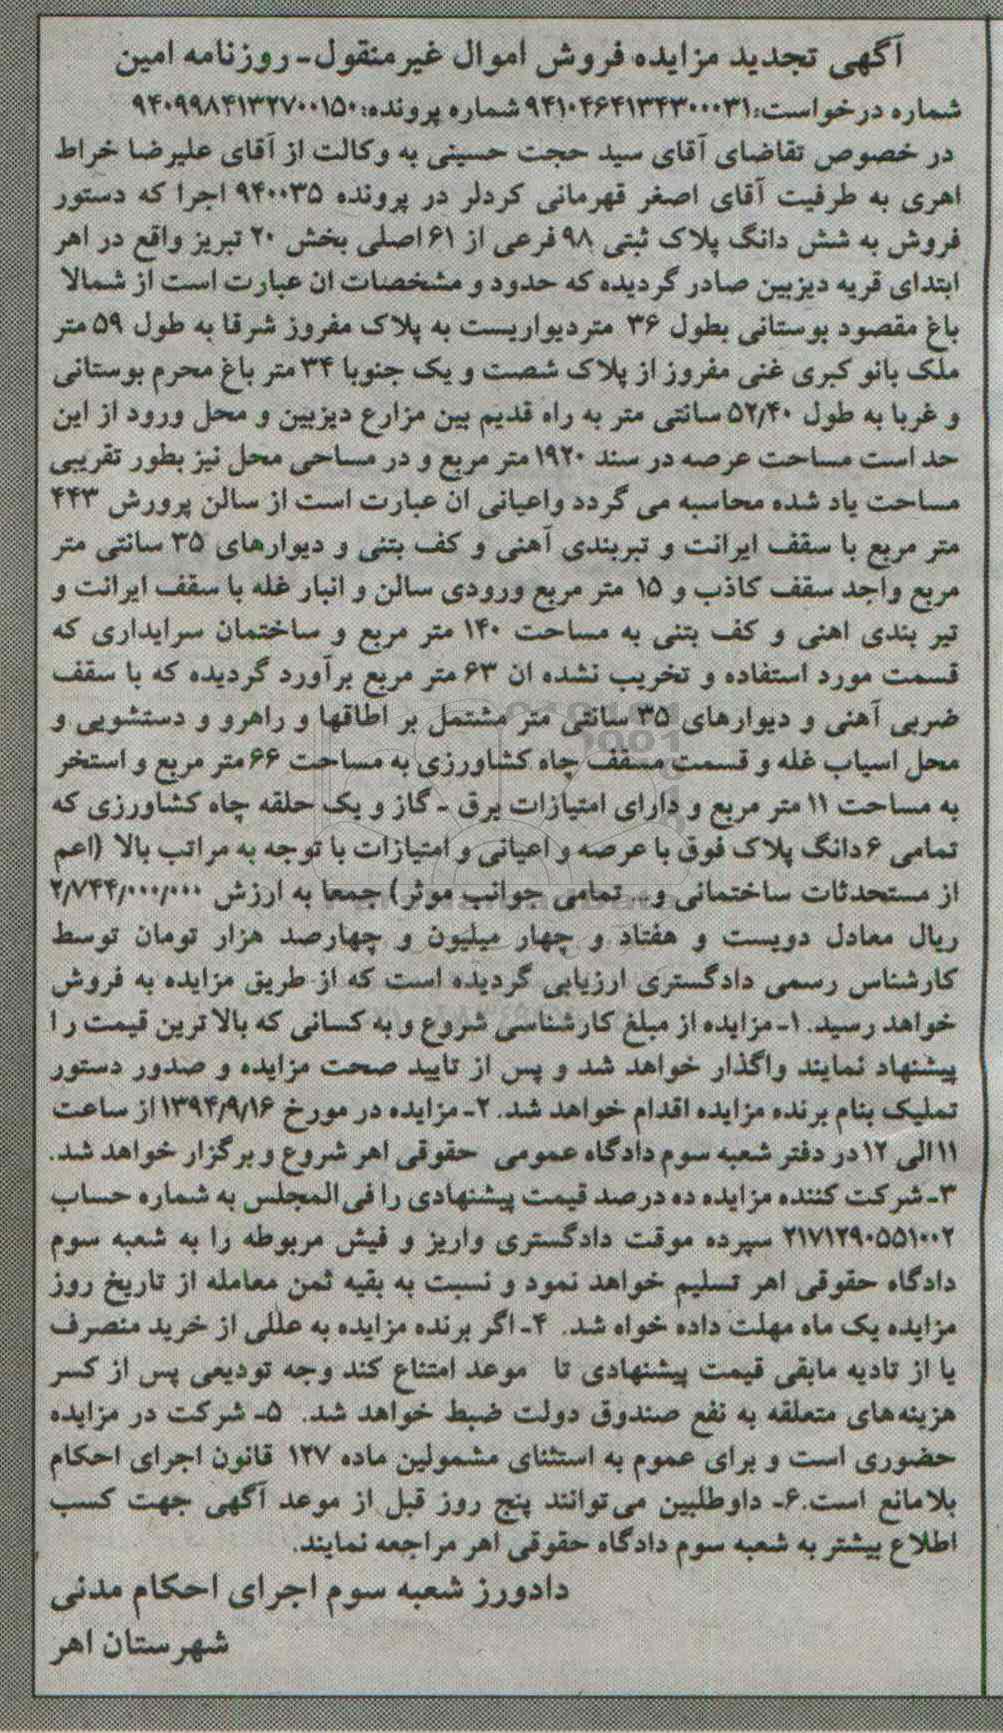 آگهی تجدید مزایده فروش اموال غیرمنقول- روزنامه امین
شماره درخواست: ۹۴۱۰۴۶۴۱۳۴۳۰۰۰۳۱ شماره پرونده: ۹۴۰۹۹۸۴۱۳۲۷۰۰۱۵۰
در خصوص تقاضای آقای سید حجت حسینی به وکالت از آقای علیرضا خراط
اهری به طرفیت آقای اصغر قهرمانی کردلر در پرونده ۹۴۰۰۳۵ اجرا که دستور
فروش به شش دانگ پلاک ثبتی ۹۸ فرعی از ۶۱ اصلی بخش ۲۰ تبریز واقع در اهر
ابتدای قریه دیزبین صادر گردیده که حدود و مشخصات ان عبارت است از شمالا
باغ مقصود بوستانی بطول ۳۶ متردیواریست به پلاک مفروز شرقا به طول ۵۹ متر
ملک بانو کبری غنی مفروز از پلاک شصت و یک جنوبا ۳۴ متر باغ محرم بوستانی
و غربا به طول ۵۲/۴۰ سانتی متر به راه قدیم بین مزارع دیزبین و محل ورود از این
حد است مساحت عرصه در سند ۱۹۲۰ متر مربع و در مساحی محل نیز بطور تقریبی
مساحت یاد شده محاسبه می گردد واعیانی ان عبارت است از سالن پرورش ۴۴۳
متر مربع با سقف ایرانت و تیربندی آهنی و کف بتنی و دیوارهای ۳۵ سانتی متر
مربع واجد سقف کاذب و ۱۵ متر مربع ورودی سالن و انبار غله با سقف ایرانت و
تیر بندی اهنی و کف بتنی به مساحت ۱۴۰ متر مربع و ساختمان سرایداری که
قسمت مورد استفاده و تخریب نشده ان ۶۳ متر مربع برآورد گردیده که با سقف
ضربی آهنی و دیوارهای ۳۵ سانتی متر مشتمل بر اطاقها و راهرو و دستشویی و
محل اسیاب غله و قسمت مسقف چاه کشاورزی به مساحت ۶۶ متر مربع و استخر
به مساحت ۱۱ متر مربع و دارای امتیازات برق - گاز و یک حلقه چاه کشاورزی که
تمامی ۶ دانگ پلاک فوق با عرصه و اعیانی و امتیازات با توجه به مراتب بالا (اعم
از مستحدثات ساختمانی و... تمامی جوانب موثر) جمعا به ارزش ۲/۷۴۴/۰۰۰/۰۰۰
ریال معادل دویست و هفتاد و چهار میلیون و چهارصد هزار تومان توسط
کارشناس رسمی دادگستری ارزیابی گردیده است که از طریق مزایده به فروش
خواهد رسید. ۱- مزایده از مبلغ کارشناسی شروع و به کسانی که بالاترین قیمت را
پیشنهاد نمایند واگذار خواهد شد و پس از تایید صحت مزایده و صدور دستور
تملیک بنام برنده مزایده اقدام خواهد شد. ۲- مزایده در مورخ ۱۳۹۴/۹/۱۶ از ساعت
۱۱ الی ۱۲ در دفتر شعبه سوم دادگاه عمومی حقوقی اهر شروع و برگزار خواهد شد.
۳- شرکت کننده مزایده ده درصد قیمت پیشنهادی را فی المجلس به شماره حساب
۲۱۷۱۲۹۰۵۵۱۰۰۲ سپرده موقت دادگستری واریز و فیش مربوطه را به شعبه سوم
دادگاه حقوقی اهر تسلیم خواهد نمود و نسبت به بقیه ثمن معامله از تاریخ روز
مزایده یک ماه مهلت داده خواه شد. ۴- اگر برنده مزایده به عللی از خرید منصرف
یا از تادیه مابقی قیمت پیشنهادی تا موعد امتناع کند وجه تودیعی پس از کسر
هزینه‌های متعلقه به نفع صندوق دولت ضبط خواهد شد. ۵- شرکت در مزایده
حضوری است و برای عموم به استثنای مشمولین ماده ۱۲۷ قانون اجرای احکام
بلامانع است. ۶- داوطلبین می‌توانند پنج روز قبل از موعد آگهی جهت کسب
اطلاع بیشتر به شعبه سوم دادگاه حقوقی اهر مراجعه نمایند.
دادورز شعبه سوم اجرای احکام مدنی
شهرستان اهر